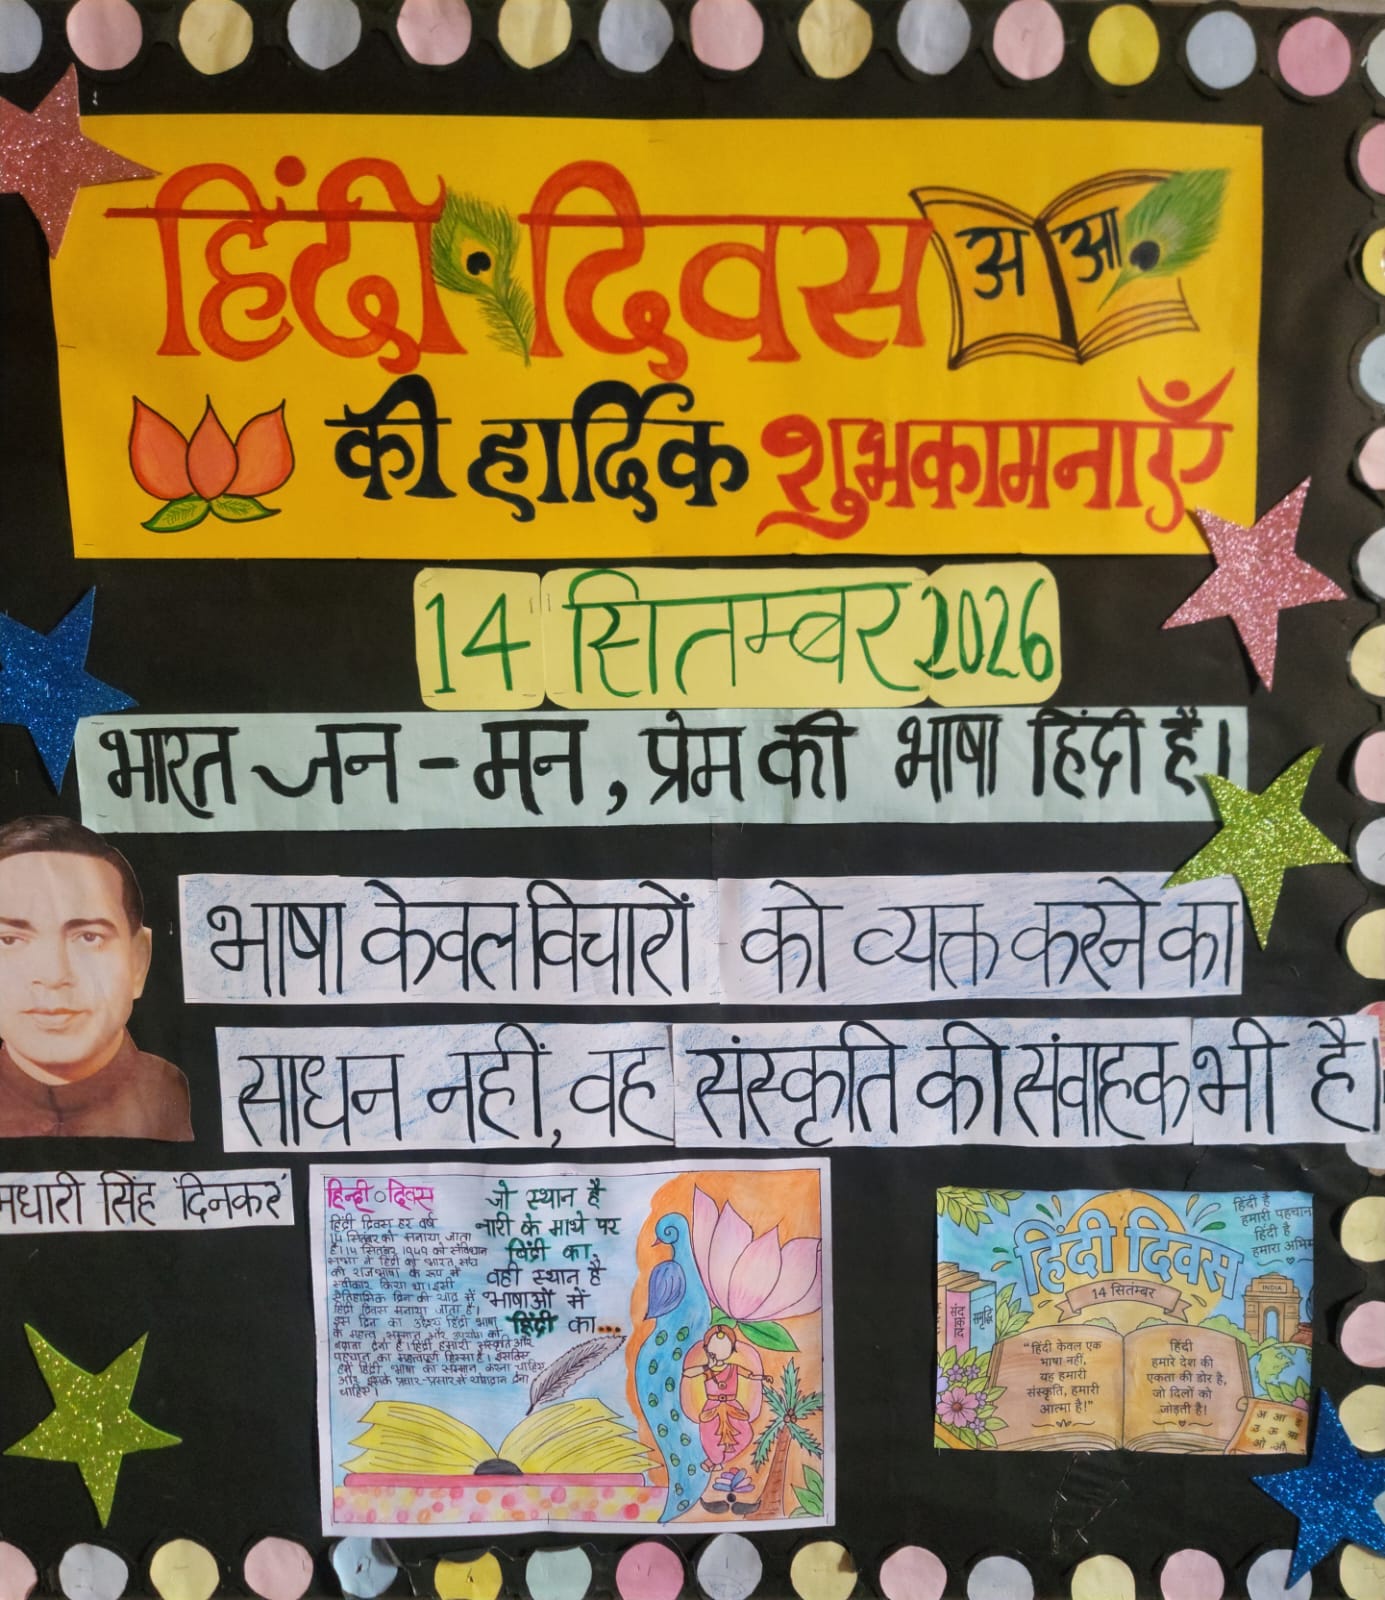 हिंदी दिवस
अ आ
की हार्दिक शुभकामनाएँ
14 सितम्बर 2026
भारत जन - मन, प्रेम की भाषा हिंदी है।
भाषा केवल विचारों को व्यक्त करने का
साधन नहीं, वह संस्कृति की संवाहक भी है।
मधारी सिंह 'दिनकर'
हिन्दी दिवस
हिंदी दिवस हर वर्ष
14 सितंबर को मनाया जाता
है। 14 सितंबर 1949 को संविधान
सभा ने हिंदी को भारत संघ
की राजभाषा के रूप में
स्वीकार किया था। इसी
ऐतिहासिक दिन की याद में
हिंदी दिवस मनाया जाता है।
इस दिन का उद्देश्य हिंदी भाषा
के महत्व, सम्मान और उपयोग को
बढ़ावा देना है। हिंदी हमारी संस्कृति और
पहचान का महत्वपूर्ण हिस्सा है। इसलिए
हमें हिंदी भाषा का सम्मान करना चाहिए
और इसके प्रचार-प्रसार में योगदान देना
चाहिए।
जो स्थान है
नारी के माथे पर
बिंदी का,
वही स्थान है
भाषाओं में
हिंदी का...
हिंदी है
हमारी पहचान
हिंदी है
हमारा अभिम
हिंदी दिवस
14 सितम्बर
INDIA
समृद्धि
"हिंदी केवल एक
भाषा नहीं,
यह हमारी
संस्कृति, हमारी
आत्मा है!"
हिंदी
हमारे देश की
एकता की डोर है,
जो दिलों को
जोड़ती है।
अ आ इ
उ ऊ ऋ
ओ औ